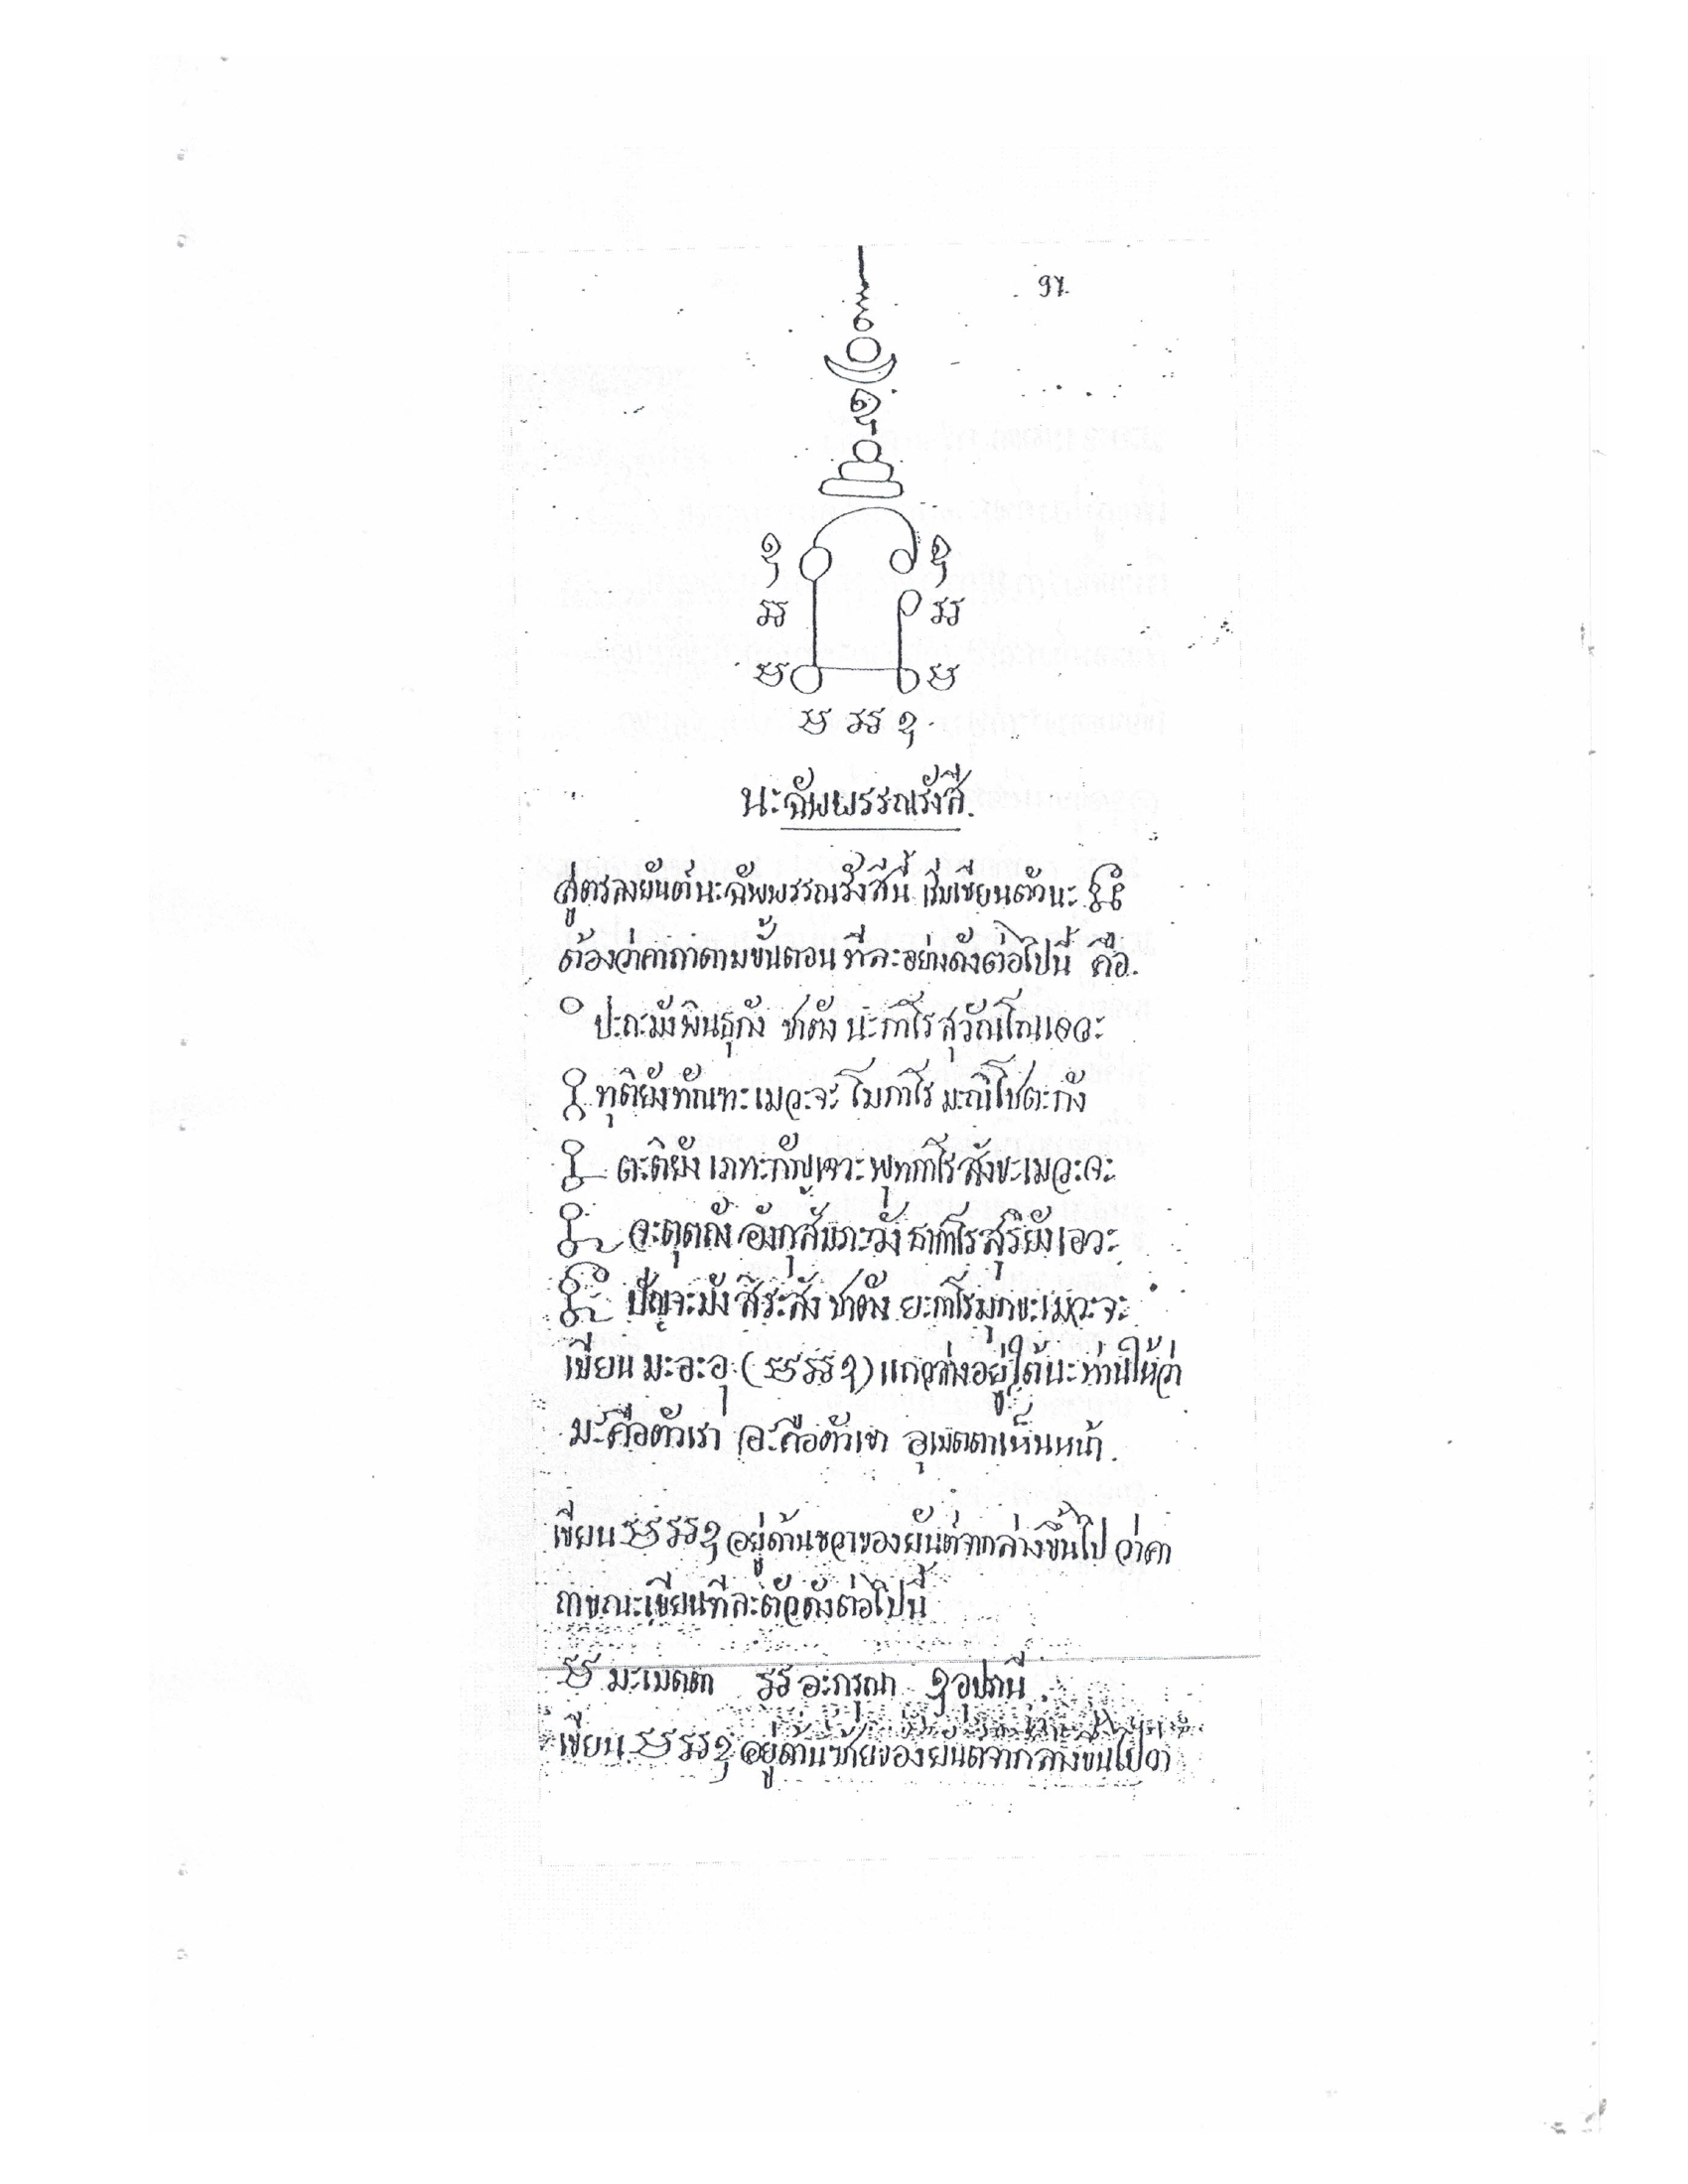 นะฉัพพรรณรังสี.
สูตรลงยันต์นะฉัพพรรณรังสีนี้ เริ่มเขียนตัวนะ
ต้องว่าคาถาตามขั้นตอน ทีละอย่างดังต่อไปนี้ คือ.
ปะถะมังพินธุกัง ชาตัง นะกาโร สุวัณโณเจวะ
ทุติยังทัณฑะเมวะจะ โมกาโร มะณีโชตะกัง
ตะติยัง เภทะกัญเจวะ พุทกาโร สังขะเมวะจะ
จะตุตถัง อังกุสัมภะวัง ธากาโร สุริยังเอวะ
ปัญจะมัง สิระสัง ชาตัง ยะกาโรมุกขะเมวะจะ
เขียน มะอะอุ ( ) แถวล่างอยู่ใต้นะ ท่านให้ว่า
มะคือตัวเรา อะคือตัวเขา อุเมตตาเห็นหน้า.
เขียน อยู่ด้านขวาของยันต์จากล่างขึ้นไป ว่าคา
ถาขณะเขียนทีละตัวดังต่อไปนี้
มะเมตตา อะกรุณา อุปรานี.
เขียน อยู่ด้านซ้ายของยันต์จากล่างขึ้นไปว่า